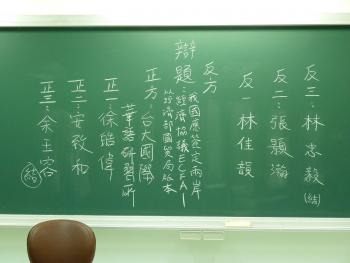 反三：林忠毅(結)
反二：張顥瀚
反一林佳韻
反方
辯題：
我國應簽定兩岸
經濟協議ECFA—
以經濟部國貿局版本
正方：台大國際
華語研習所
正一：徐皓偉
正二：安致和
正三：余王容
結